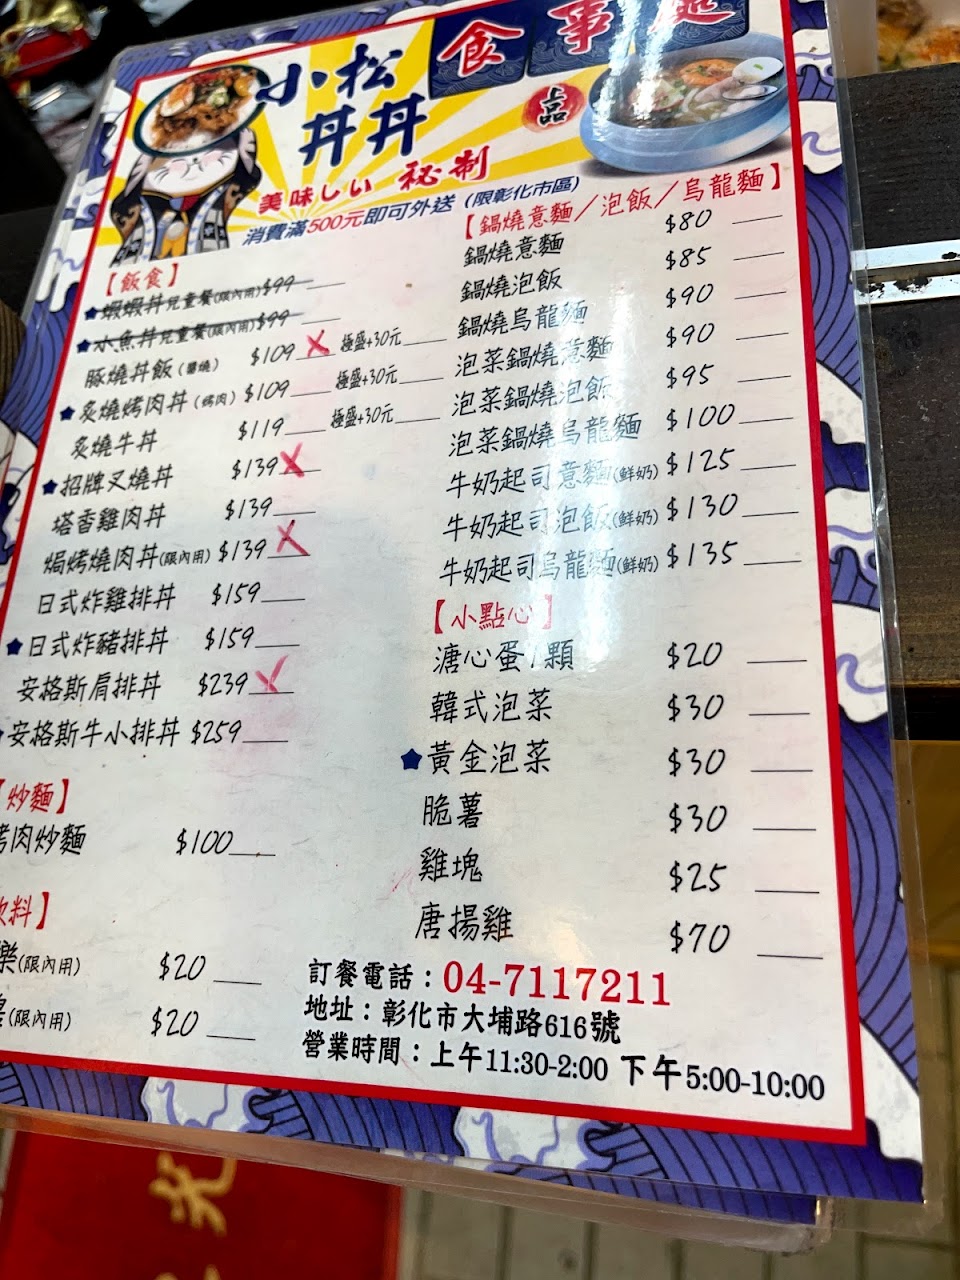 小松 食事處
丼丼
上品
美味しい 秘制
消費滿500元即可外送 (限彰化市區)
【飯食】
★蝦蝦丼兒童餐(限內用)$99
★小魚丼兒童餐(限內用)$99
豚燒丼飯(醬燒) $109 X 極盛+30元
★炙燒烤肉丼(烤肉) $109 極盛+30元
炙燒牛丼 $119 極盛+30元
★招牌叉燒丼 $139 X
塔香雞肉丼 $139
焗烤燒肉丼(限內用) $139 X
日式炸雞排丼 $159
★日式炸豬排丼 $159
安格斯肩排丼 $239 X
安格斯牛小排丼 $259
【炒麵】
烤肉炒麵 $100
飲料】
樂(限內用) $20
(限內用) $20
【鍋燒意麵/泡飯/烏龍麵】
鍋燒意麵 $80
鍋燒泡飯 $85
鍋燒烏龍麵 $90
泡菜鍋燒意麵 $90
泡菜鍋燒泡飯 $95
泡菜鍋燒烏龍麵 $100
牛奶起司意麵(鮮奶) $125
牛奶起司泡飯(鮮奶) $130
牛奶起司烏龍麵(鮮奶) $135
【小點心】
溏心蛋/顆 $20
韓式泡菜 $30
★黃金泡菜 $30
脆薯 $30
雞塊 $25
唐揚雞 $70
訂餐電話：04-7117211
地址：彰化市大埔路616號
營業時間：上午11:30-2:00 下午5:00-10:00